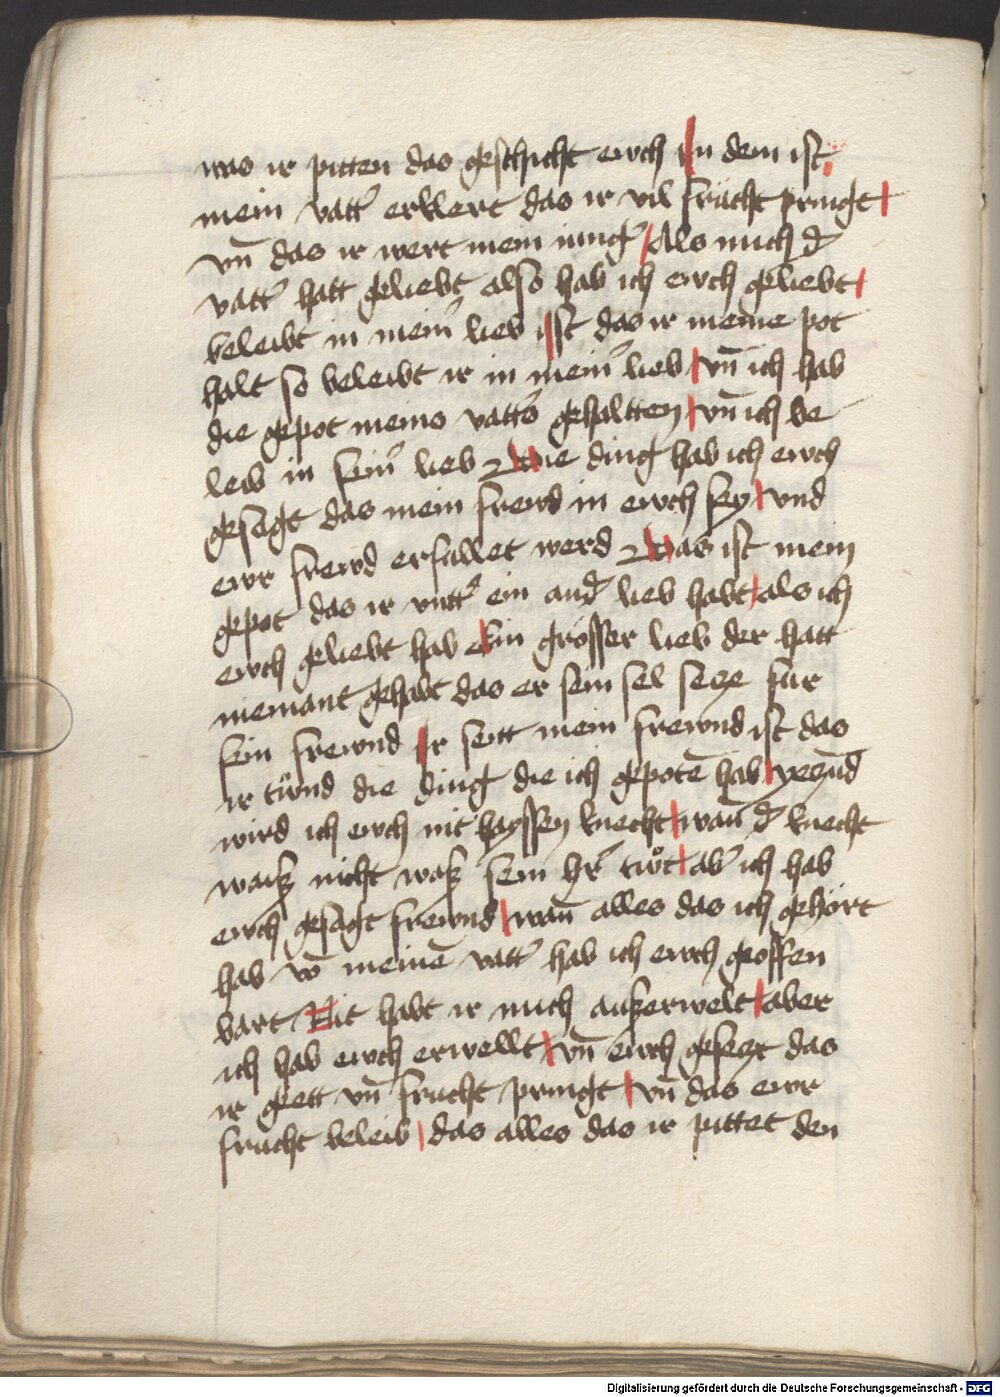 was ir pitten das geschicht ewch In dem ist
mein vatt̉ erklert das ir vil frücht pringt
vn̄ das ir wert mein iung̉ Als mich d̉
vatt̉ hatt geliebt also hab ich ewch geliebt
beleibt in mein̉ lieb ist das ir meine pot
halt so beleibt ir in mein̉ lieb vn̄ ich hab
die gepot meins vatt̉s gehaltten vn̄ ich be
leib in sein̉ lieb Die ding hab ich ewch
gesagt das mein frewd in ewch sey vnd
ewr frewd erfullet werd Das ist mein
gepot das ir vntt̉ ein and̉ lieb habt als ich
ewch geliebt hab ein grösser lieb der hatt
niemant gehabt das er sein sel secze für
sein frewnd Ir seitt mein frewnd ist das
ir tünd die ding die ich gepotē hab yeczūd
wird ich ewch nit hayssen knecht wan̄ d̉ knecht
waisz nicht wasz sein hr̄ tuͦt ab̉ ich hab
ewch gesagt frewnd wan̄ alles das ich gehört
hab vō meinē vatt̉ hab ich ewch geoffen
bart Nit habt ir mich auszerwelt aber
ich hab ewch erwellt vn̄ ewch geseczt das
ir gett vn̄ frucht pringt vn̄ das ewr
frucht beleib das alles das ir pittet den
Digitalisierung gefördert durch die Deutsche Forschungsgemeinschaft - DFG